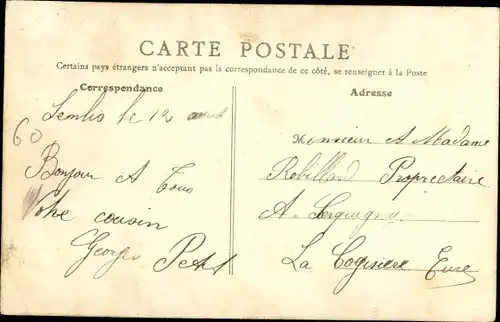 CARTE POSTALE
Certains pays étrangers n'acceptant pas la correspondance de ce côté, se renseigner à la Poste
Correspondance
Adresse
60
Senlis le 12 août
Bonjour A Tous
Votre cousin
Georges Petit
Monsieur A Madame
Robillard Propriétaire
A Serquigny
La Eure